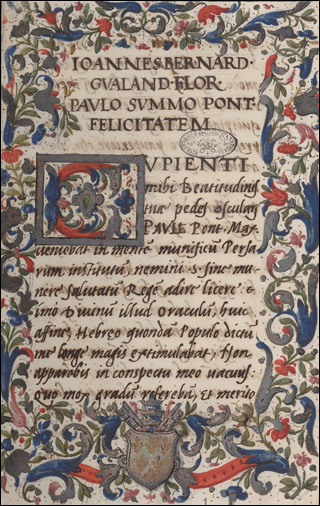 IOANNES·BERNARD·
GVALAND·FLOR·
PAVLO SVMMO PONT·
FELICITATEM
CVPIENTI
mihi Beatitudinis
tuæ pedes osculari
PAVLE Pont. Max.
veniebat in mentē munificū Persa
rum institutū, nemini s. sine mu
nere salutatū Regē adire licere: &
imo Diuinū illud Oraculū, huic
affine, Hebreo quondā Populo dictū
me longe magis extimulabat, Non
apparebis in conspectu meo vacuus.
Quo mox gradū referebā, Et merito